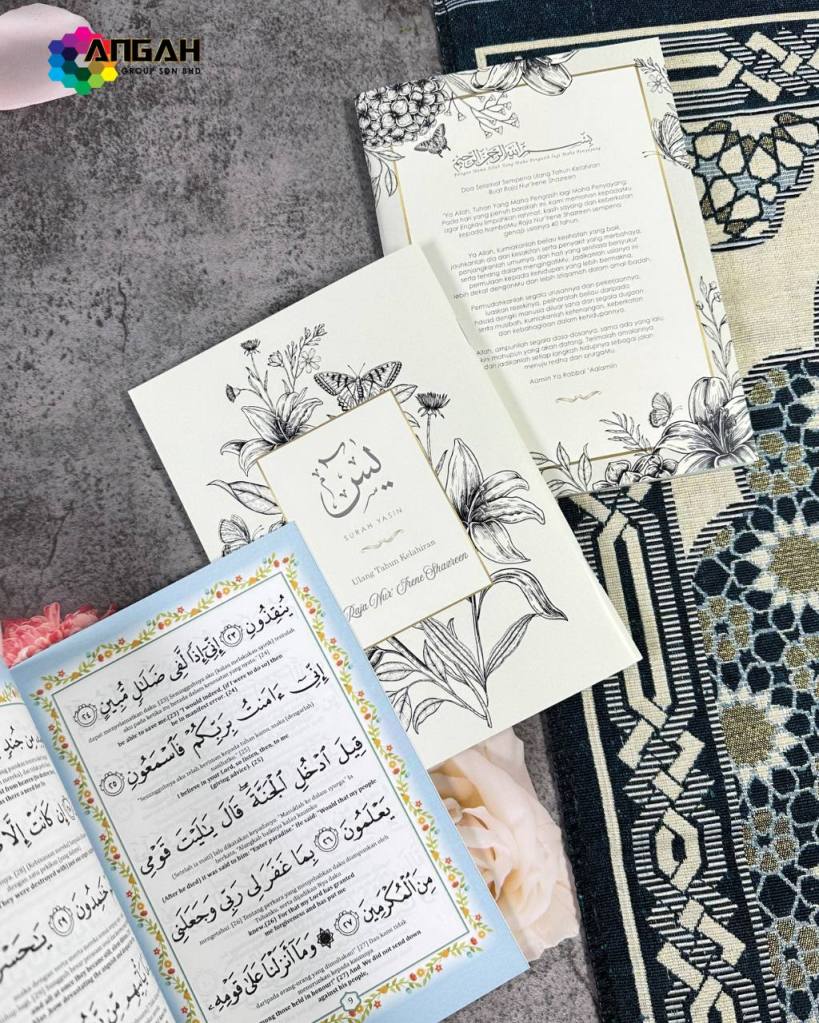 ANGAH
GROUP SDN BHD
بسم الله الرحمن الرحيم
Dengan Nama Allah Yang Maha Pengasih lagi Maha Penyayang
Doa Selamat Sempena Ulang Tahun Kelahiran
Buat Raja Nur'Irene Shazreen
"Ya Allah, Tuhan Yang Maha Pengasih lagi Maha Penyayang,
Pada hari yang penuh barakah ini, kami memohon kepadaMu
agar Engkau limpahkan rahmat, kasih sayang dan keberkatan
kepada hambaMu Raja Nur'Irene Shazreen sempena
genap usianya 40 tahun.
Ya Allah, kurniakanlah beliau kesihatan yang baik,
jauhkanlah dia dari kesakitan serta penyakit yang merbahaya,
panjangkanlah umurnya, dan hati yang sentiasa bersyukur
serta tenang dalam mengingatiMu. Jadikanlah usianya ini
permulaan kepada kehidupan yang lebih bermakna,
lebih dekat denganMu dan lebih istiqamah dalam amal ibadah.
Permudahkanlah segala urusannya dan pekerjaannya,
luaskan rezekinya, peliharalah beliau daripada
hasad dengki manusia diluar sana dan segala dugaan
serta musibah, kurniakanlah ketenangan, keberkatan
dan kebahagiaan dalam kehidupannya.
Allah, ampunilah segala dosa-dosanya, sama ada yang lalu,
kini mahupun yang akan datang. Terimalah amalannya
dan jadikanlah setiap langkah hidupnya sebagai jalan
menuju redha dan syurgaMu.
Aamiin Ya Rabbal 'Aalamiin
يس
SURAH YASIN
Ulang Tahun Kelahiran
Raja Nur' Irene Shazreen
يُنقِذُونِ ٢٣ إِنِّىٓ إِذًا لَّفِى ضَلَٰلٍ مُّبِينٍ ٢٤
dapat menyelamatkan daku. [23] Sesungguhnya aku (kalau melakukan syirik) tentulah
aku pada ketika itu berada dalam kesesatan yang nyata." [24]
be able to save me.(23) "I would indeed, (if I were to do so) then
be in manifest error. (24)
إِنِّىٓ ءَامَنتُ بِرَبِّكُمْ فَٱسْمَعُونِ ٢٥
"Sesungguhnya aku telah beriman kepada tuhan kamu, maka (dengarlah)
nasihatku." [25]
I believe in your Lord, so listen, then, to me
(giving advice). (25)
قِيلَ ٱدْخُلِ ٱلْجَنَّةَ قَالَ يَٰلَيْتَ قَوْمِى
(Setelah ia mati) lalu dikatakan kepadanya: "Masuklah ke dalam syurga" Ia
berkata; "Alangkah baiknya kalau kaumku
(After he died) it was said to him: "Enter paradise." He said: "Would that my people
يَعْلَمُونَ ٢٦ بِمَا غَفَرَ لِى رَبِّى وَجَعَلَنِى
mengetahui. [26] Tentang perkara yang menyebabkan daku diampunkan oleh
Tuhanku, serta dijadikan Nya daku
know.(26) For that my Lord has granted
me forgiveness and has put me
مِنَ ٱلْمُكْرَمِينَ ٢٧ وَمَآ أَنزَلْنَا عَلَىٰ قَوْمِهِۦ
daripada orang-orang yang dimuliakan!" [27] Dan kami tidak
menurunkan kepada kaumnya
among those held in honour!" [27] And We did not send down
against his people,
9